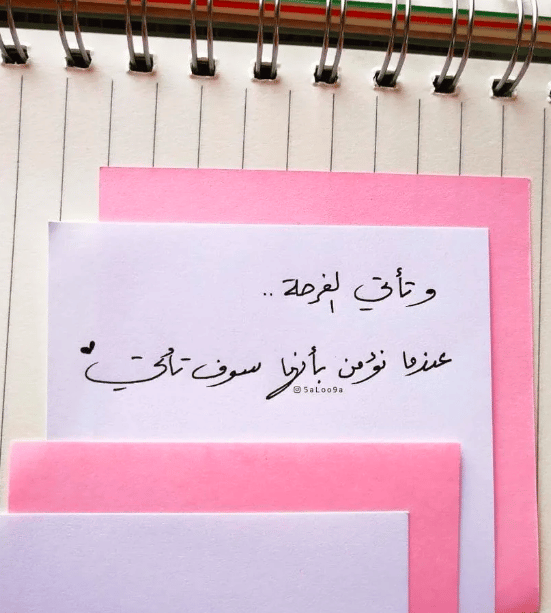 و تأتي الفرحة ..
عندما نؤمن بأنها سوف تأتي
5aLoo9a